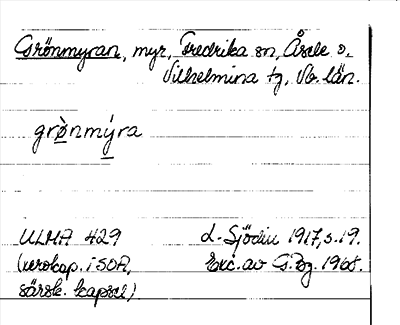 Grönmyran, myr, Fredrika sn, Åsele o.
Vilhelmina tg, Vb. län.
grò̤nmý̲ra
ULMA 429 L. Sjödin 1917, s. 19.
(xerokop. i SOA, Exc. av G.Bg. 1968.
särsk. kapsel)